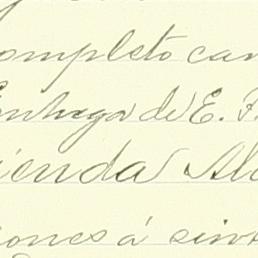 ompleto cam
Entrega de E. F
ienda Alo
iones á sint